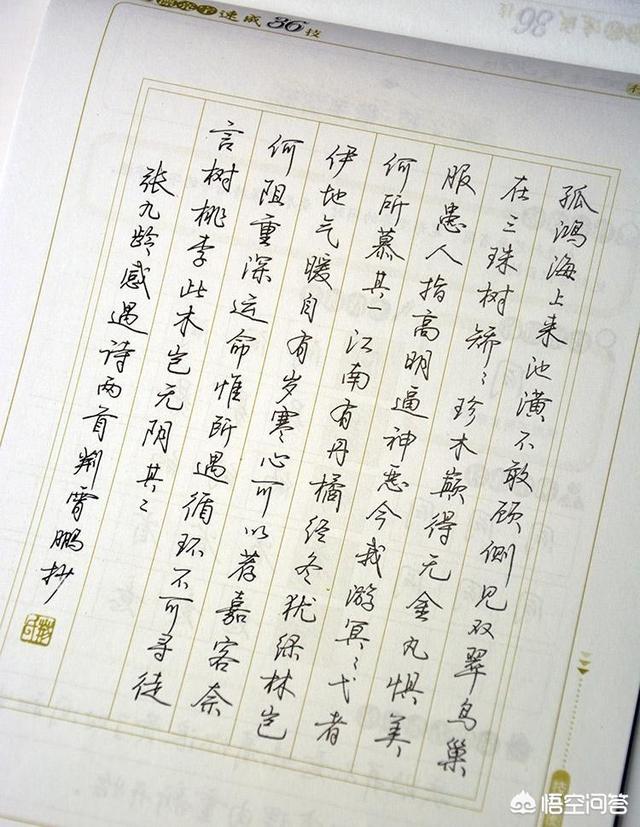 速成36技
孤鸿海上来池潢不敢顾侧见双翠鸟巢
在三珠树矫〻珍木巅得无金丸惧美
服患人指高明逼神恶今我游冥〻弋者
何所慕其一江南有丹橘经冬犹绿林岂
伊地气暖自有岁寒心可以荐嘉客奈
何阻重深运命惟所遇循环不可寻徒
言树桃李此木岂无阴其二
张九龄感遇诗两首荆霄鹏抄
悟空问答